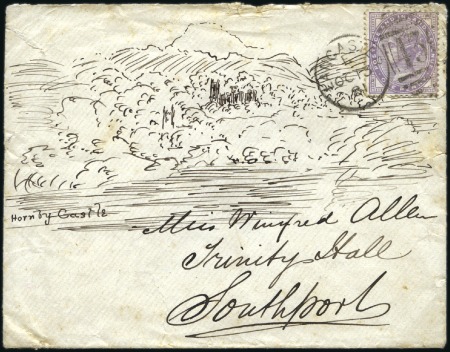 Hornby Castle
Miss Winifred Allen
Trinity Hall
Southport